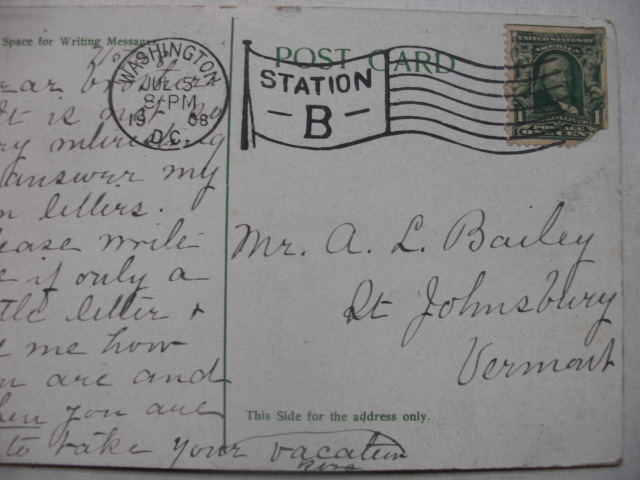 Space for Writing Messages
POST CARD
WASHINGTON
JUL 5
8-PM
19 08
D.C.
STATION
B
UNITED STATES OF
AMERICA
1 1
FRANKLIN
POSTAGE
ONE CENT
ear brother
It is not my
ry
answer my
n letters.
lease write
e if only a
ttle letter &
me how
u are and
hen you are
to take your vacation
Mr. A. L. Bailey
St Johnsbury
Vermont
This Side for the address only.